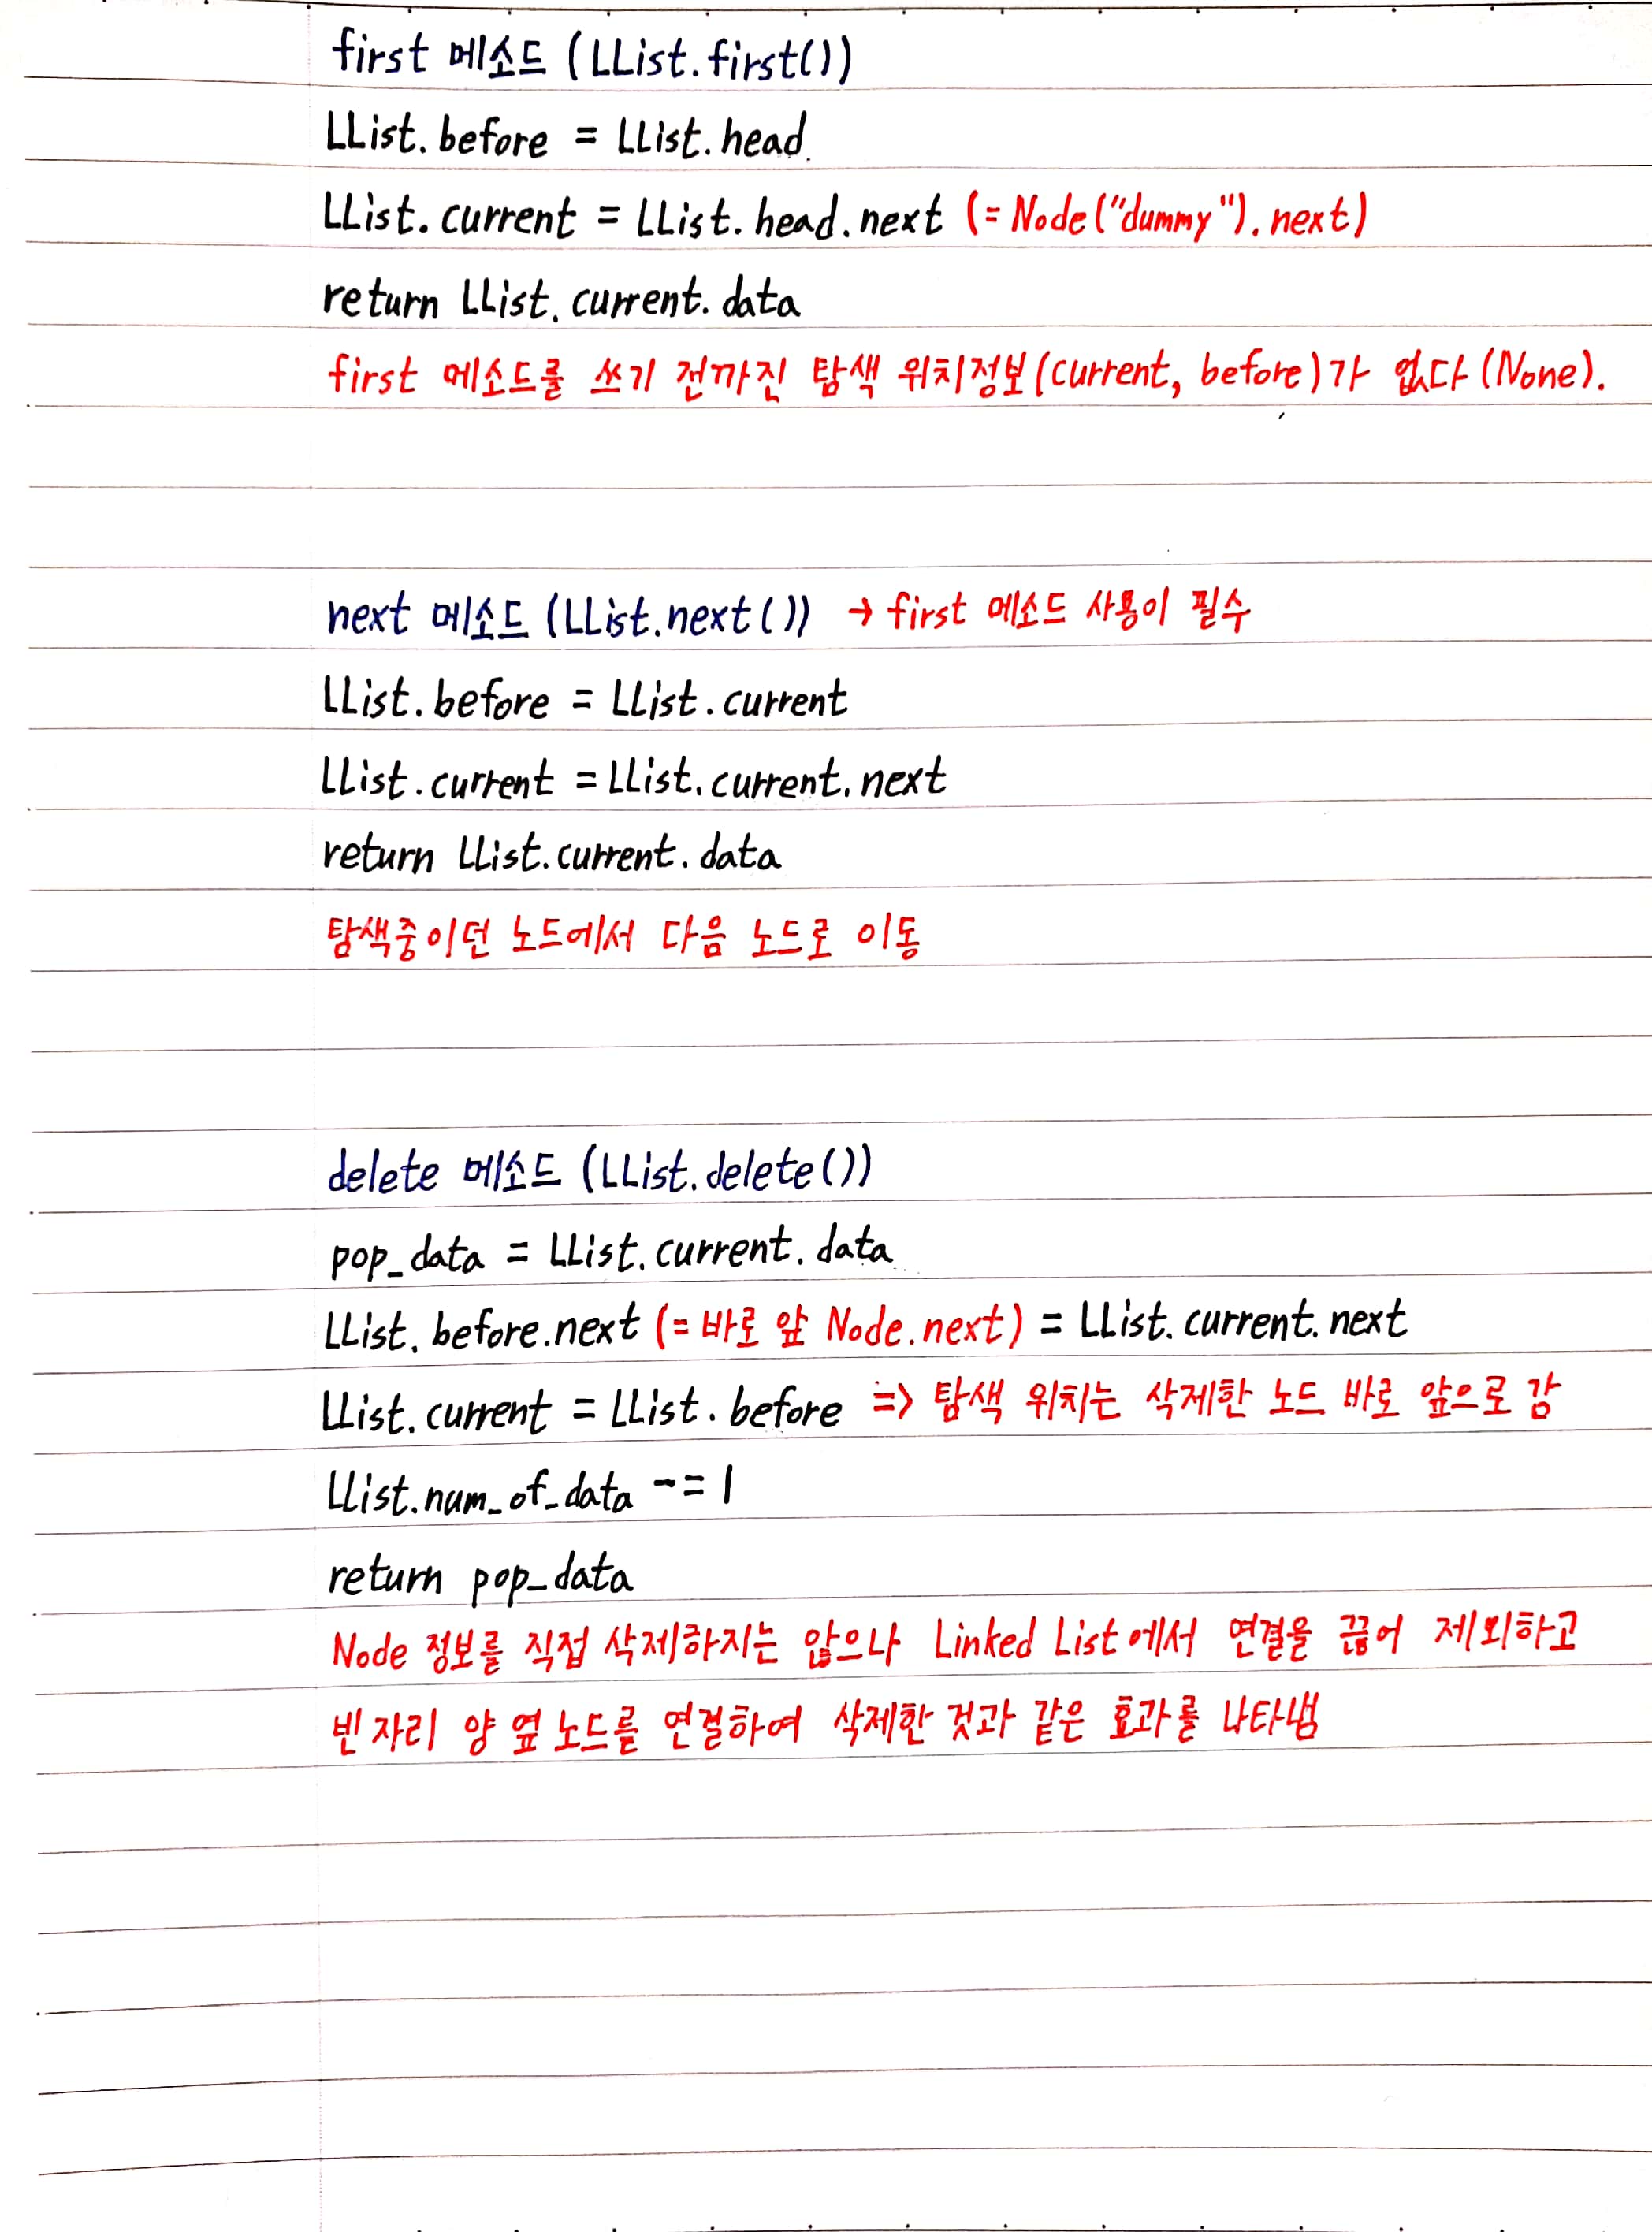 first 메소드 (LList.first())
LList.before = LList.head
LList.current = LList.head.next (=Node("dummy").next)
return LList.current.data
first 메소드를 쓰기 전까진 탐색 위치정보(current, before)가 없다(None).
next 메소드 (LList.next()) → first 메소드 사용이 필수
LList.before = LList.current
LList.current = LList.current.next
return LList.current.data
탐색중이던 노드에서 다음 노드로 이동
delete 메소드 (LList.delete())
pop_data = LList.current.data
LList.before.next (=바로 앞 Node.next) = LList.current.next
LList.current = LList.before => 탐색 위치는 삭제한 노드 바로 앞으로 감
LList.num_of_data -= 1
return pop_data
Node 정보를 직접 삭제하지는 않으나 Linked List에서 연결을 끊어 제외하고
빈 자리 양 옆 노드를 연결하여 삭제한 것과 같은 효과를 나타냄